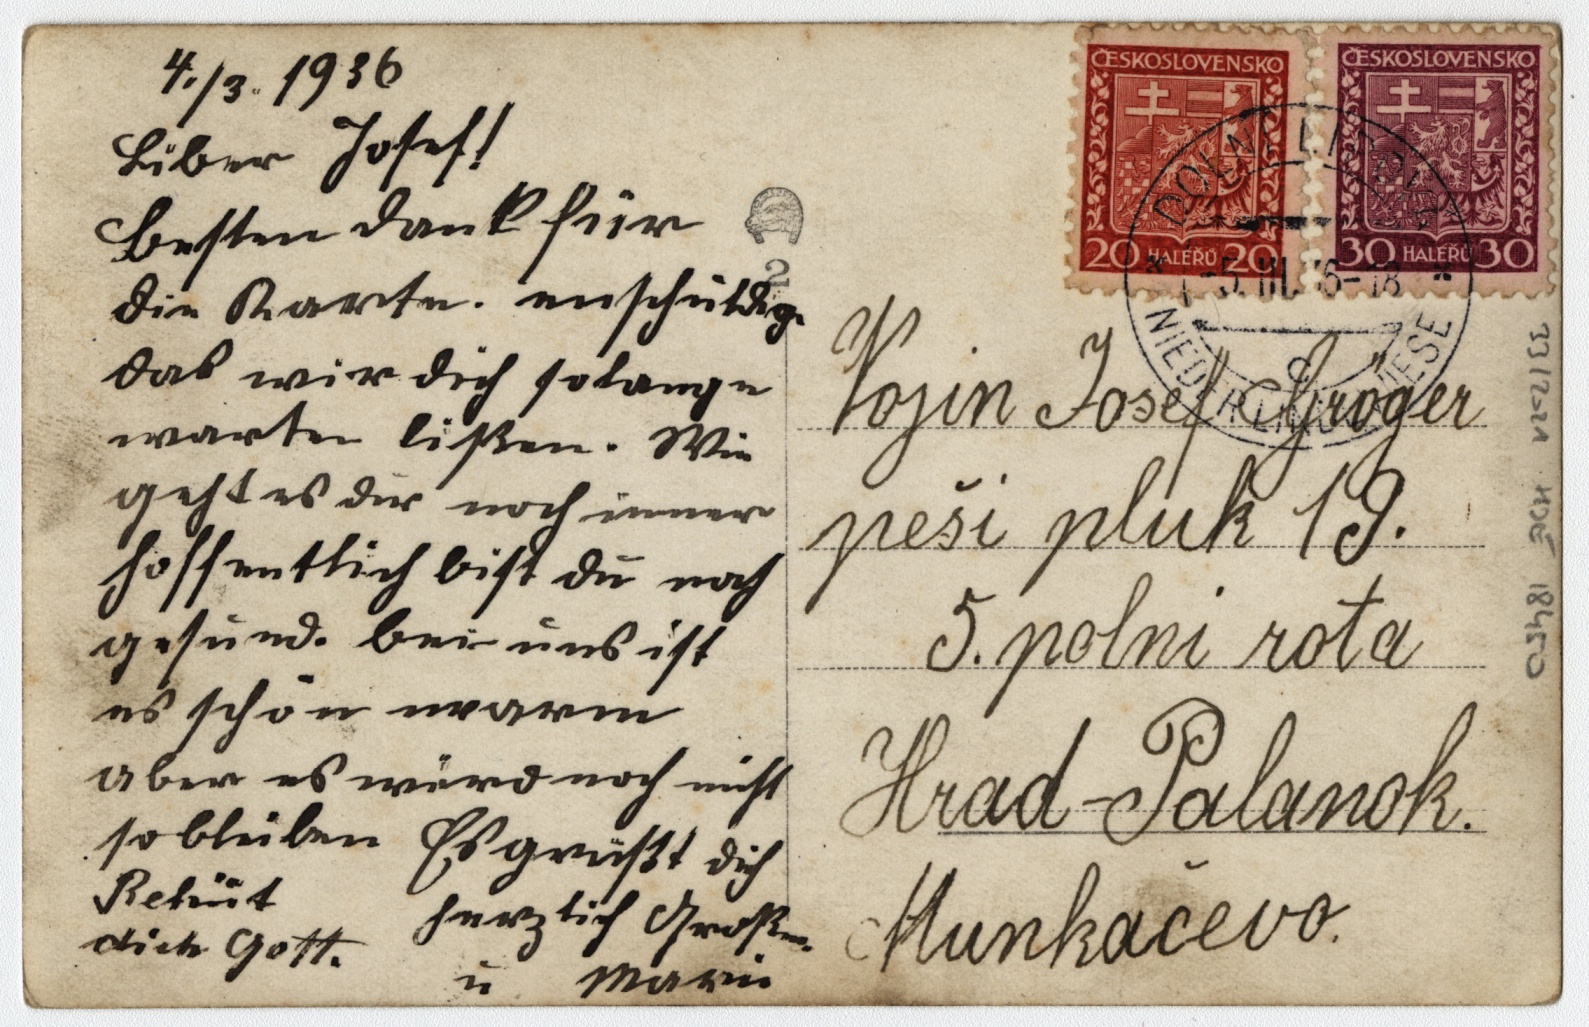 4./3. 1936
Liber Josef!
Besten dank für
die Karte. enschuldige
das wir dich solange
warten lißen. Wie
geht es dir noch immer
hoffentlich bist du noch
gesund. bei uns ist
es schön warm
aber es würd noch nicht
so bleiben
Behüt
dich Gott.
Es grüßt dich
herzlich
u Marie
2
ČESKOSLOVENSKO
20 HALÉŘŮ 20
ČESKOSLOVENSKO
30 HALÉŘŮ 30
DOLNÍ LIPOVÁ
-5.III.36-18
NIEDER LINDEWIESE
Vojin Josef Gröger
peši pluk 19.
5. polni rota
Hrad-Palanok.
Munkačevo.